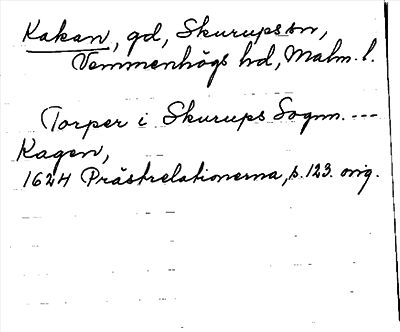 Kakan, gd, Skurups sn,
Vemmenhögs hd, Malm. l.
Torper i Skurups Sognn. ---
Kagen,
1624 Prästrelationerna, s. 123. orig.